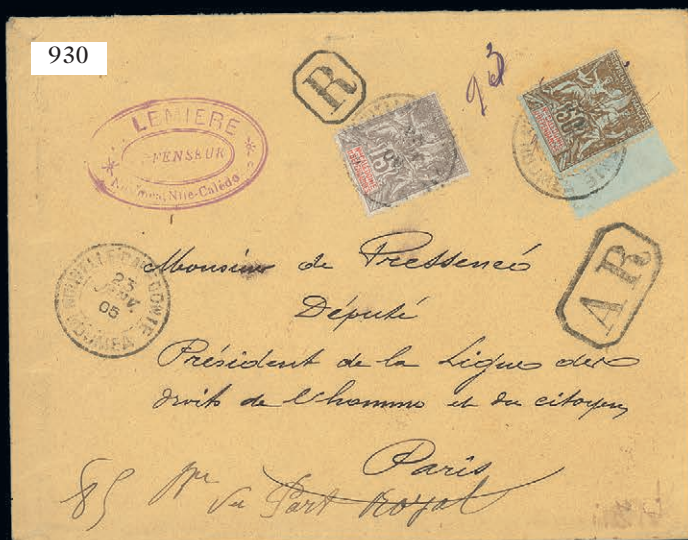 930
R
LEMIERE
FENSEUR
Nlle-Calédo
15
50
A R
NOUVELLE CALEDONIE
23
JANV.
05
NOUMEA
Monsieur de Pressensé
Député
Président de la Ligue des
droits de l'homme et du citoyen
Paris
85 Bd du Port Royal